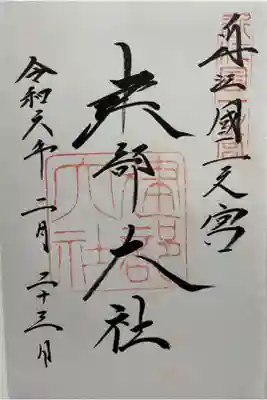 近江國一之宮
建部大社
建部
大社
令和六年 二月 二十三日